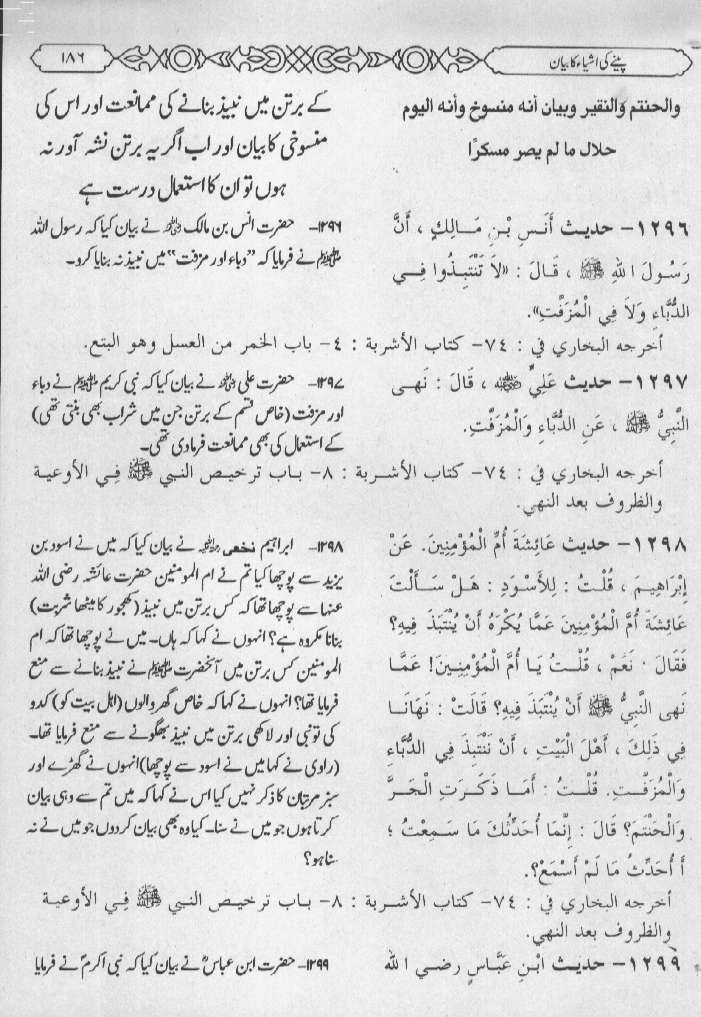 پینے کی اشیاء کا بیان
١٨٦
والحنتم والنقير وبيان أنه منسوخ وأنه اليوم
حلال ما لم يصر مسكرًا
کے برتن میں نبیذ بنانے کی ممانعت اور اس کی
منسوخی کا بیان اور اب اگر یہ برتن نشہ آور نہ
ہوں تو ان کا استعمال درست ہے
١٢٩٦- حديث أَنَسِ بْنِ مَالِكٍ ، أَنَّ
رَسُولَ اللهِ ﷺ ، قَالَ : «لاَ تَنْتَبِذُوا فِي
الدُّبَّاءِ وَلاَ فِي الْمُزَفَّتِ».
۱۲۹۶- حضرت انس بن مالک رضی اللہ عنہ نے بیان کیا کہ رسول اللہ
ﷺ نے فرمایا کہ ”دباء اور مزفت“ میں نبیذ نہ بنایا کرو۔
أخرجه البخاري في : ٧٤- كتاب الأشربة : ٤- باب الخمر من العسل وهو البتع.
١٢٩٧- حديث عَلِيٍّ رضي الله عنه ، قَالَ : نَهى
النَّبِيُّ ﷺ ، عَنِ الدُّبَّاءِ وَالْمُزَفَّتِ.
۱۲۹۷- حضرت علی رضی اللہ عنہ نے بیان کیا کہ نبی کریم ﷺ نے دباء
اور مزفت (خاص قسم کے برتن جن میں شراب بھی بنتی تھی)
کے استعمال کی بھی ممانعت فرمادی تھی۔
أخرجه البخاري في : ٧٤- كتاب الأشربة : ٨- باب ترخيص النبي ﷺ في الأوعية
والظروف بعد النهي.
١٢٩٨- حديث عَائِشَةَ أُمِّ الْمُؤْمِنِينَ. عَنْ
إِبْرَاهِيمَ ، قُلْتُ : لِلأَسْوَدِ : هَلْ سَأَلْتَ
عَائِشَةَ أُمَّ الْمُؤْمِنِينَ عَمَّا يُكْرَهُ أَنْ يُنْتَبَذَ فِيهِ؟
فَقَالَ : نَعَمْ ، قُلْتُ يَا أُمَّ الْمُؤْمِنِينَ! عَمَّا
نَهى النَّبِيُّ ﷺ أَنْ يُنْتَبَذَ فِيهِ؟ قَالَتْ : نَهَانَا
فِي ذَلِكَ ، أَهْلَ الْبَيْتِ ، أَنْ نَنْتَبِذَ فِي الدُّبَّاءِ
وَالْمُزَفَّتِ. قُلْتُ : أَمَا ذَكَرَتِ الْجَرَّ
وَالْحَنْتَمَ؟ قَالَ : إِنَّمَا أُحَدِّثُكَ مَا سَمِعْتُ ؛
أَ أُحَدِّثُ مَا لَمْ أَسْمَعْ؟.
۱۲۹۸- ابراہیم نخعی رحمہ اللہ نے بیان کیا کہ میں نے اسود بن
یزید سے پوچھا کیا تم نے ام المومنین حضرت عائشہ رضی اللہ
عنہا سے پوچھا تھا کہ کس برتن میں نبیذ (کھجور کا میٹھا شربت)
بنانا مکروہ ہے؟ انہوں نے کہا کہ ہاں۔ میں نے پوچھا تھا کہ ام
المومنین کس برتن میں آنحضرت ﷺ نے نبیذ بنانے سے منع
فرمایا تھا؟ انہوں نے کہا کہ خاص گھر والوں (اہل بیت کو) کدو
کی تونبی اور لاکھی برتن میں نبیذ بھگونے سے منع فرمایا تھا۔
(راوی نے کہا میں نے اسود سے پوچھا) انہوں نے گھڑے اور
سبز مرتبان کا ذکر نہیں کیا اس نے کہا کہ میں تم سے وہی بیان
کرتا ہوں جو میں نے سنا۔ کیا وہ بھی بیان کردوں جو میں نے نہ
سنا ہو؟
أخرجه البخاري في : ٧٤- كتاب الأشربة : ٨- باب ترخيص النبي ﷺ في الأوعية
والظروف بعد النهي.
١٢٩٩- حديث ابْنِ عَبَّاسٍ رضي الله
۱۲۹۹- حضرت ابن عباسؓ نے بیان کیا کہ نبی اکرمؐ نے فرمایا